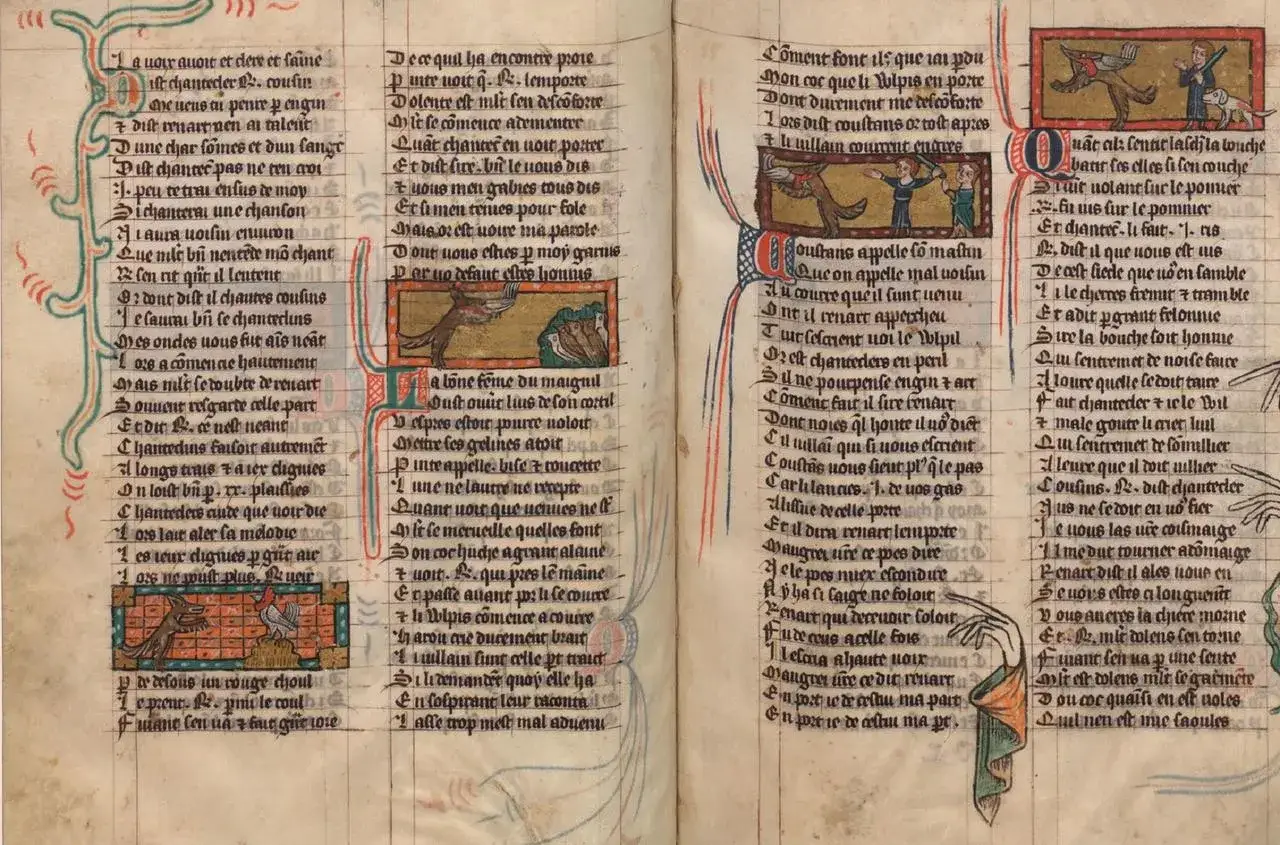 La voix avoit et clere et saine
Dist chantecler .R. cousin
Me vens tu penre p engin
& dist renart nen ai talent
Dune char somes et dun sangc
Dist chantec̄ pas ne ten croi
.I. peu te trai ensus de moy
Si chanterai une chanson
Ni aura voisin environ
Que mlt bn̄ nentēde mō chant
R sen rit qn̄t il lentent
Or dont dist il chantes cousins
Je saurai bn̄ se chanteclins
Mes ondes vous fut ains neāt
Lors a cōmencie hautement
Mais mlt se doubte de renart
Souvent resgarde celle part
Et dit .R. ce nest neant
Chanteclins faisoit autremēt
A longs trais & a iex clignies
On loist bn̄ p. xx. plaissies
Chanteclers cuide que voir die
Lors lait aler sa melodie
Les ieux clignies p gn̄t air
Lors ne poust plus .R. veir
p de desous un rouge choul
Le prent .R. pmi le coul
Fuiant sen va & fait gn̄t ioie
De ce quil ha encontre proie
Pinte voit q̄ .R. lemporte
Dolente est mlt sen descōforte
Mlt se cōmence a dementer
Quāt chantec̄ en voit porter
Et dist sire bn̄ le vous dis
& vous men gabies tous dis
Et si men tenies pour fole
Mais or est voire ma parole
Dont vous estes p moy garnis
Par vo defaut estes honnis
La bōne fēme du maignil
Ooust ouūt luis de son cortil
Vespres estoit pource voloit
Mettre ses gelines a toit
Pinte appelle bise & roucette
Lune ne lautre ne recepte
Quant voit que venues ne sōt
Mlt se merveille quelles font
Son coc huche a grant alaine
& voit .R. qui pres le maine
Et passe avant por li secourre
& li Wlpis cōmence a courre
Harou crie durement brait
Li vuillain sunt celle pt trait
Si li demandēt quoy elle ha
En sospirant leur raconta
Lasse trop mest mal advenu
Cōment font ils que iai pdu
Mon coc que li Wlpis en porte
Dont durement me descōforte
Lors dist coustans or tost apres
& li vuillain courrent engres
Coustans appelle sō mastin
Que on appelle mal voisin
Au courre que il sunt venu
Ont il renart apperceu
Tuit sescrient voi le Wlpil
Or est chanteclers en peril
Sil ne pourpense engin & art
Cōment fait il sire renart
Dont noies ql honte il vo9 diēt
Cil vullaī qui si vous escrient
Coustās vous sieut pl9 q̄ le pas
Car li lancies .I. de vos gas
A lissue de celle porte
Et il dira renart lemporte
Maugrei vr̄e ce poes dire
Ne le poes miex escondire
Ny ha si saige ne foloit
Renart qui decevoir soloit
Fu deceus a celle fois
Il escria a haute voix
Maugrei vr̄e ce dit renart
En port ie de cestui ma part
En port ie de cestui ma pt.
Quāt cilz sentit lasch̄ la bouche
batit ses elles si sen couche
Si vit volant sur le pomier
.R. fu vis sur le pommier
Et chantec̄ li fait .I. ris
.R. dist il que vous est vis
De cest siecle que vo9 en samble
Li lecherres fremit & tramble
Et a dit p grant felonnie
Sire la bouche soit honnie
Qui sentremet de noise faire
A loure quelle se doit taire
Fait chantecler & ie le Wil
& male goute li criet luil
Qui sentremet de somillier
A leure que il doit villier
Cousins .R. dist chantecler
Nus ne se doit en vo9 fier
Je vous las vr̄e cosinaige
Il me dut tourner a dōmaige
Renart dist il ales vous en
Se vous estes ci longuemēt
Vous aures la chiere morne
Et .R. mlt dolens sen torne
Fuiant sen va p une sente
Mlt est dolens mlt se garmēte
Dou coc quaīsi en est voles
Quil nen est mie saoules